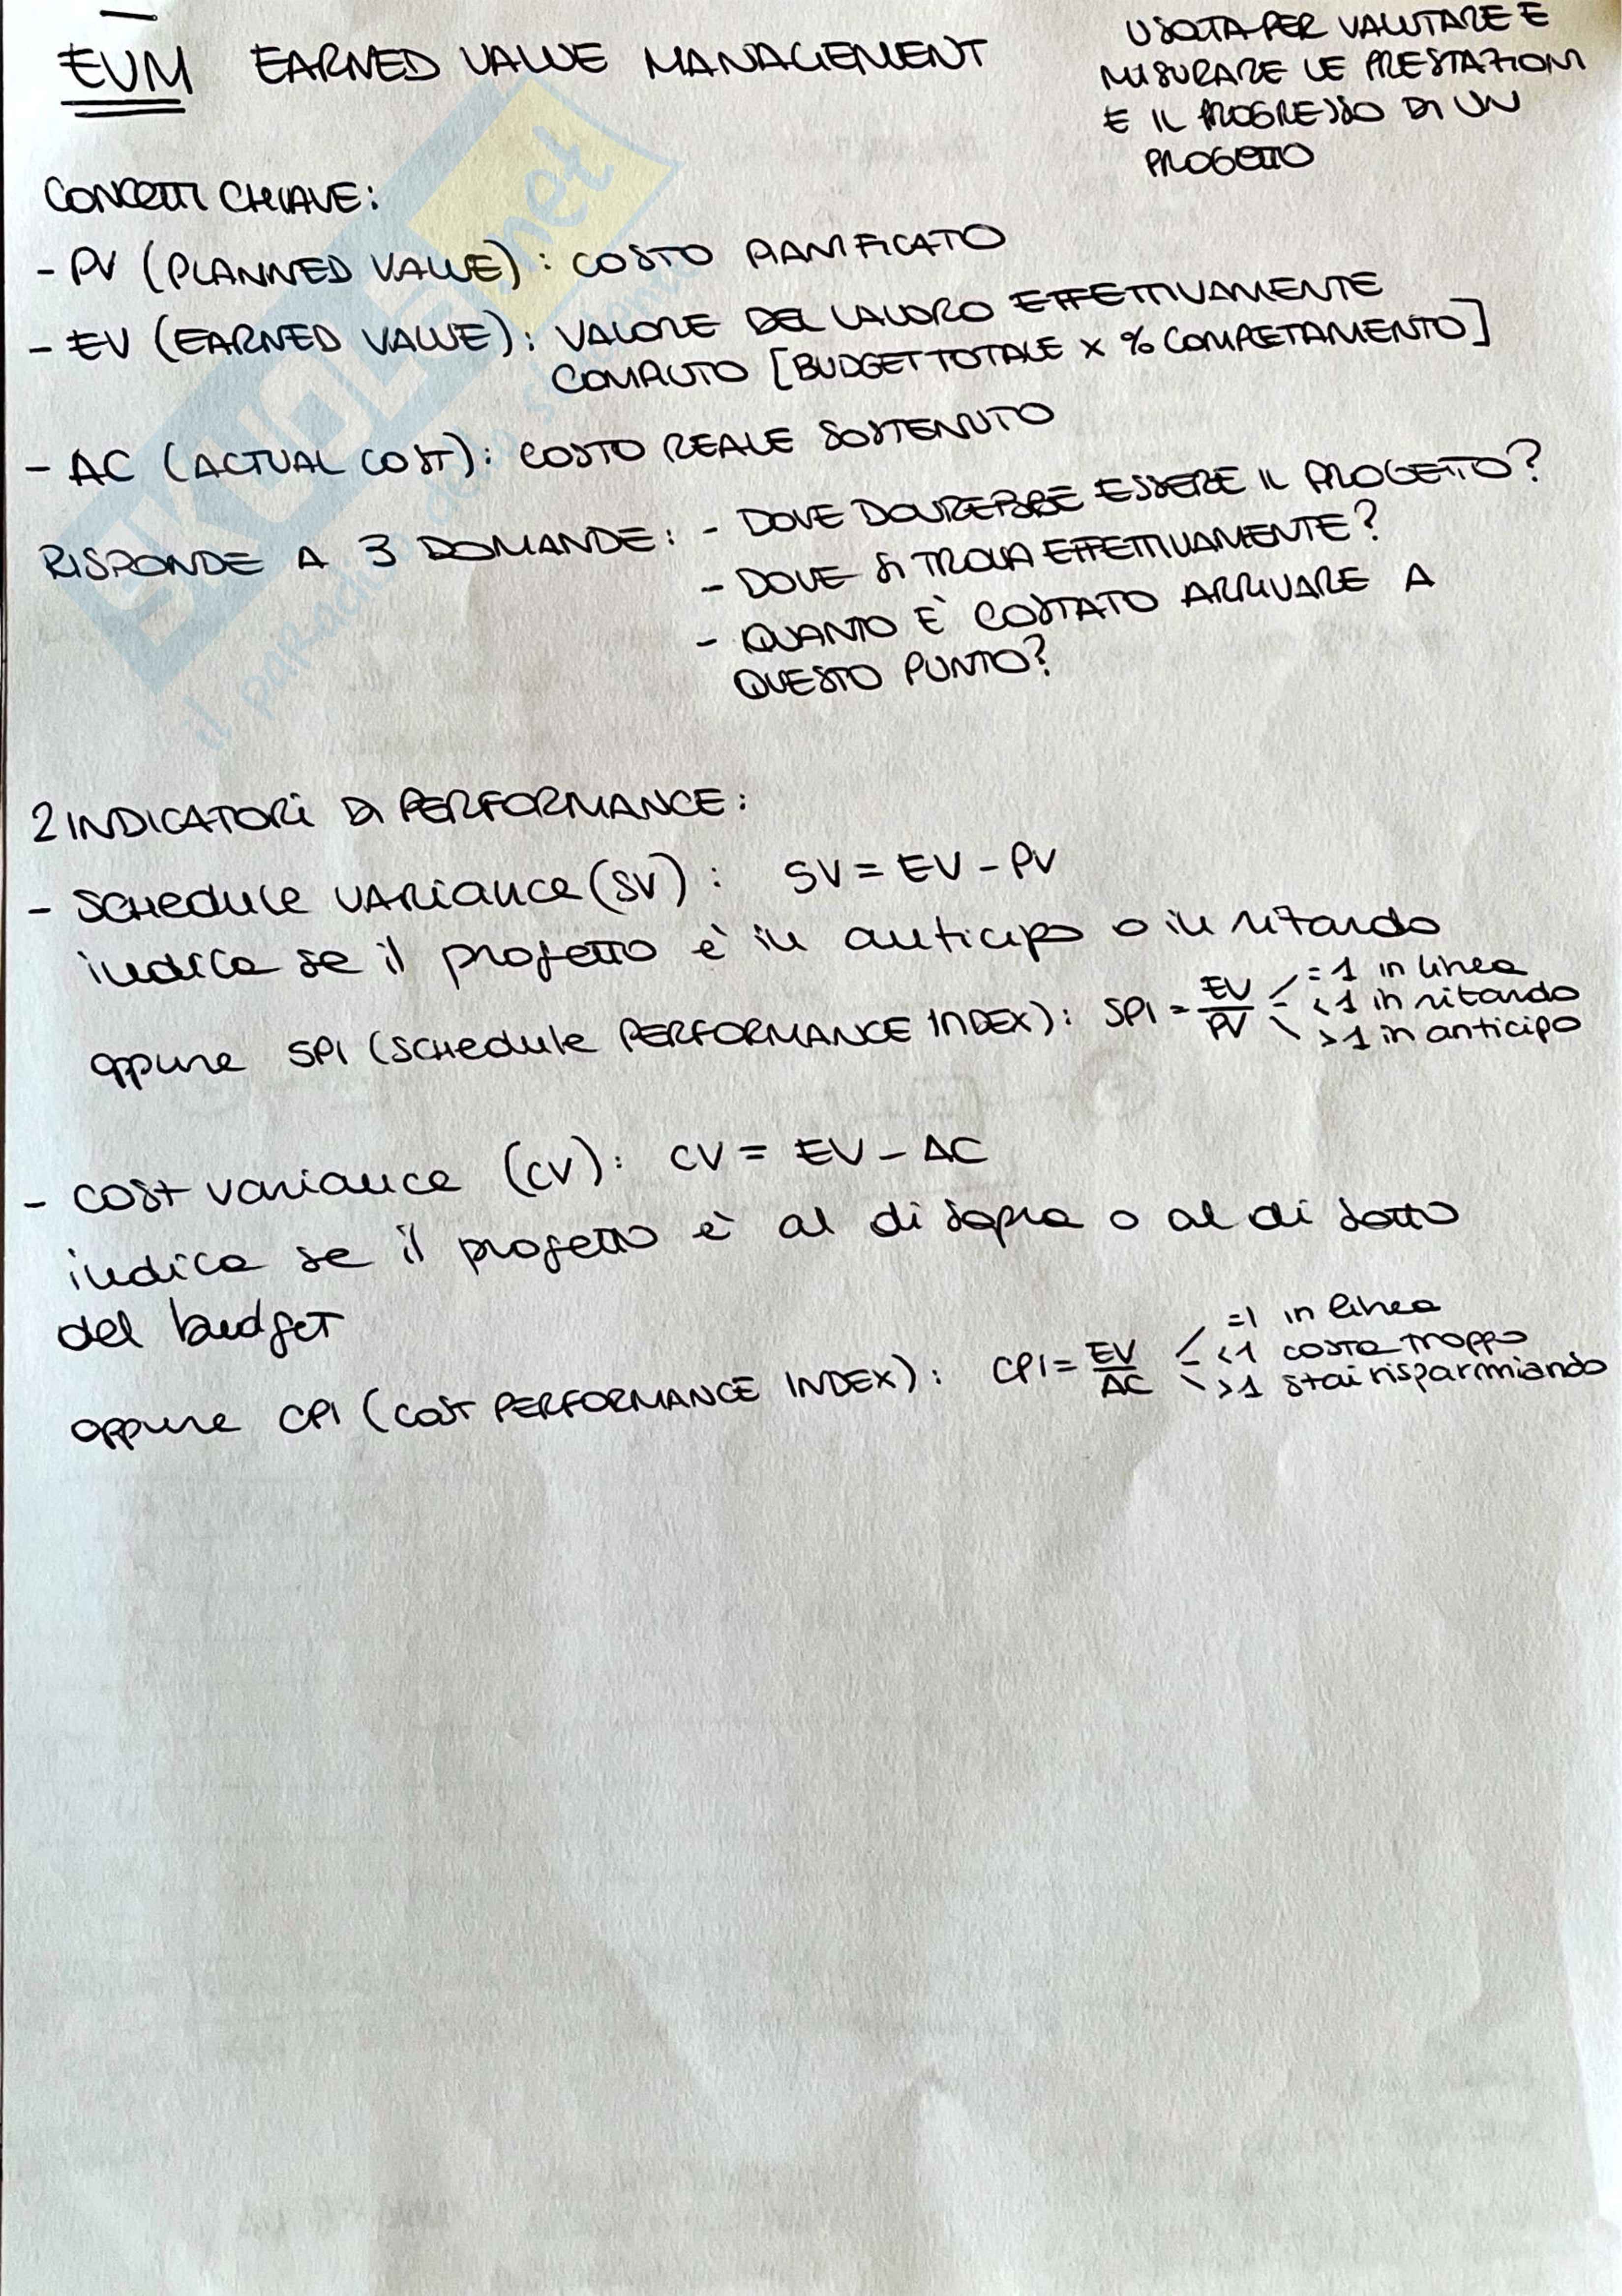 EVM EARNED VALUE MANAGEMENT
USATA PER VALUTARE E
MISURARE LE PRESTAZIONI
E IL PROGRESSO DI UN
PROGETTO
CONCETTI CHIAVE:
- PV (PLANNED VALUE): COSTO PIANIFICATO
- EV (EARNED VALUE): VALORE DEL LAVORO EFFETTIVAMENTE
COMPIUTO [BUDGET TOTALE X % COMPLETAMENTO]
- AC (ACTUAL COST): COSTO REALE SOSTENUTO
RISPONDE A 3 DOMANDE: - DOVE DOVREBBE ESSERE IL PROGETTO?
- DOVE SI TROVA EFFETTIVAMENTE?
- QUANTO È COSTATO ARRIVARE A
QUESTO PUNTO?
2 INDICATORI DI PERFORMANCE:
- SCHEDULE VARIANCE (SV): SV = EV - PV
indica se il progetto è in anticipo o in ritardo
oppure SPI (SCHEDULE PERFORMANCE INDEX): SPI = EV/PV
= 1 in linea
< 1 in ritardo
> 1 in anticipo
- cost variance (CV): CV = EV - AC
indica se il progetto è al di sopra o al di sotto
del budget
oppure CPI (COST PERFORMANCE INDEX): CPI = EV/AC
=1 in linea
<1 costa troppo
>1 stai risparmiando
SKUOLA.net
il paradiso dello studente